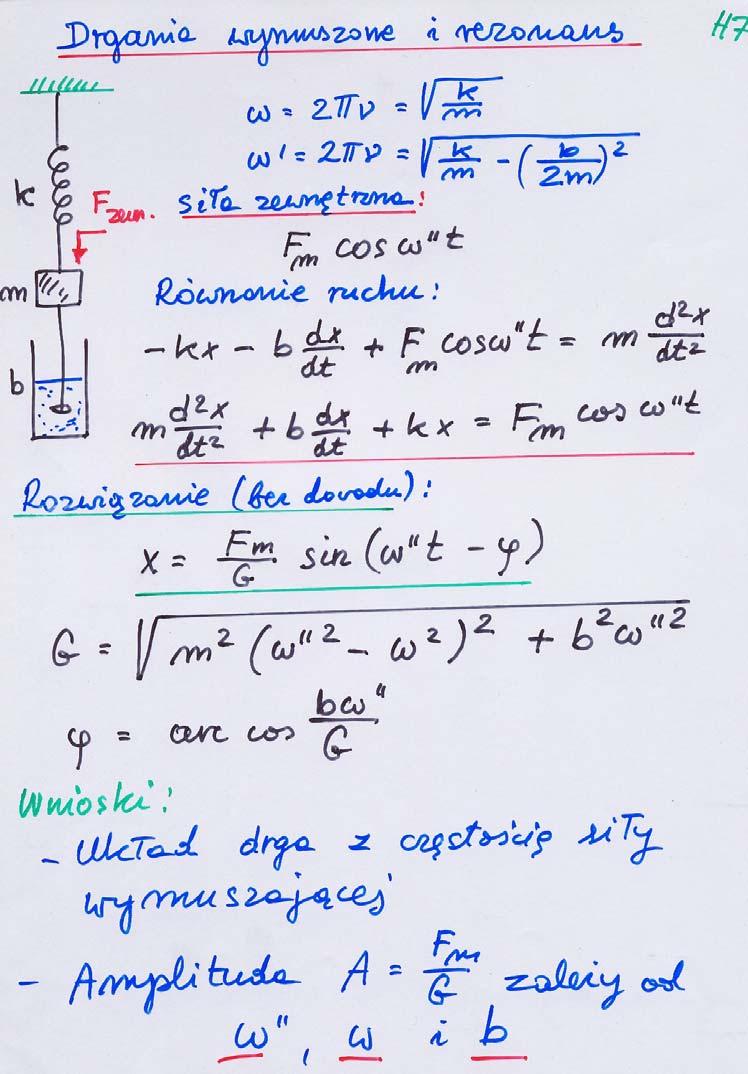 Drgania wymuszone i rezonans
H7
ω = 2πν = √(k/m)
ω' = 2πν = √(k/m - (b/2m)²)
k
F zewn. siła zewnętrzna:
F_m cos ω"t
m
Równanie ruchu:
-kx - b dx/dt + F_m cos ω"t = m d²x/dt²
b
m d²x/dt² + b dx/dt + kx = F_m cos ω"t
Rozwiązanie (bez dowodu):
x = F_m/G sin (ω"t - φ)
G = √(m² (ω"² - ω²)² + b²ω"²)
φ = arc cos bω"/G
Wnioski:
- Układ drga z częstością siły
wymuszającej
- Amplituda A = F_m/G zależy od
ω", ω i b